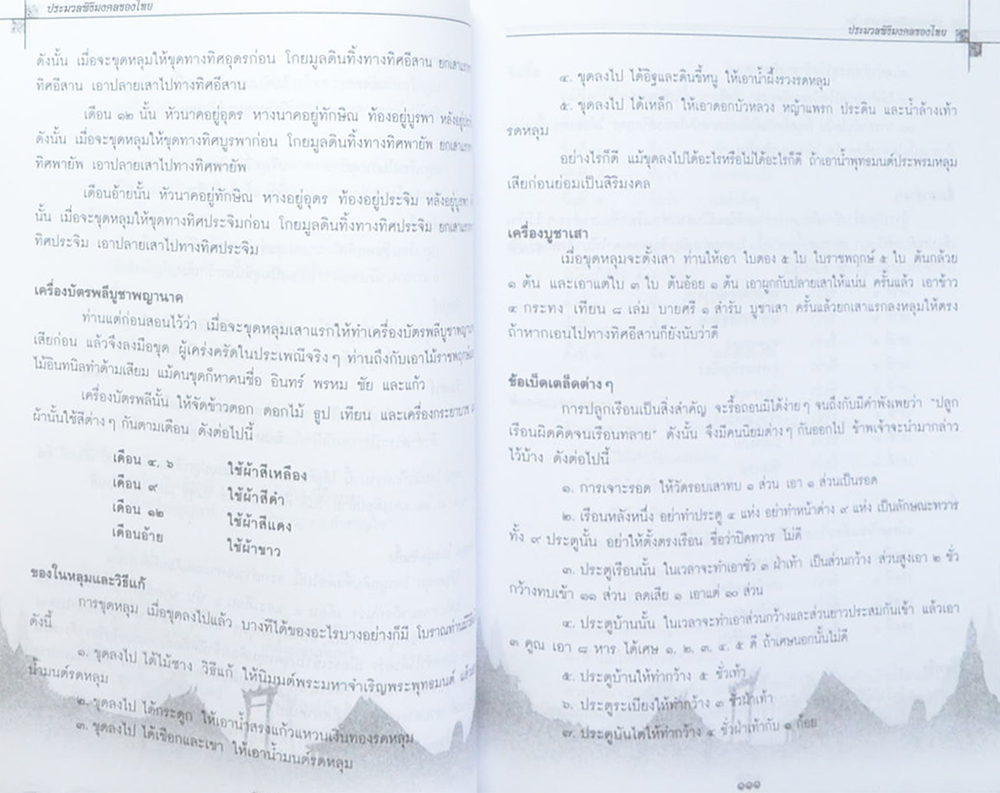 ประมวลพิธีมงคลของไทย
ดังนั้น เมื่อจะขุดหลุมให้ขุดทางทิศอุดรก่อน โกยมูลดินทิ้งทางทิศอีสาน ยกเสาแรก
ทิศอีสาน เอาปลายเสาไปทางทิศอีสาน
เดือน ๑๒ นั้น หัวนาคอยู่อุดร หางนาคอยู่ทักษิณ ท้องอยู่บูรพา หลังอยู่
ดังนั้น เมื่อจะขุดหลุมให้ขุดทางทิศบูรพาก่อน โกยมูลดินทิ้งทางทิศพายัพ ยกเสาแรก
ทิศพายัพ เอาปลายเสาไปทางทิศพายัพ
เดือนอ้ายนั้น หัวนาคอยู่ทักษิณ หางอยู่อุดร ท้องอยู่ประจิม หลังอยู่บูรพา
นั้น เมื่อจะขุดหลุมให้ขุดทางทิศประจิมก่อน โกยมูลดินทิ้งทางทิศประจิม ยกเสาแรก
ทิศประจิม เอาปลายเสาไปทางทิศประจิม
เครื่องบัตรพลีบูชาพญานาค
ท่านแต่ก่อนสอนไว้ว่า เมื่อจะขุดหลุมเสาแรกให้ทำเครื่องบัตรพลีบูชาพญานาค
เสียก่อน แล้วจึงลงมือขุด ผู้เคร่งครัดในประเพณีจริงๆ ท่านถึงกับเอาไม้ราชพฤกษ์
ไม้อินทนิลทำด้ามเสียม แม้คนขุดก็หาคนชื่อ อินทร์ พรหม ชัย และแก้ว
เครื่องบัตรพลีนั้น ให้จัดข้าวตอก ดอกไม้ ธูป เทียน และเครื่องกระยาบวช
ผ้านั้นใช้สีต่างๆ กันตามเดือน ดังต่อไปนี้
เดือน ๔, ๖ ใช้ผ้าสีเหลือง
เดือน ๙ ใช้ผ้าสีดำ
เดือน ๑๒ ใช้ผ้าสีแดง
เดือนอ้าย ใช้ผ้าขาว
ของในหลุมและวิธีแก้
การขุดหลุม เมื่อขุดลงไปแล้ว บางทีได้ของอะไรบางอย่างก็มี โบราณท่านมีวิธี
ดังนี้
๑. ขุดลงไป ได้ไม้ซาง วิธีแก้ ให้นิมนต์พระมหาจำเริญพระพุทธมนต์ แล้ว
น้ำมนต์รดหลุม
๒. ขุดลงไป ได้กระดูก ให้เอาน้ำสรงแก้วแหวนเงินทองรดหลุม
๓. ขุดลงไป ได้เชือกและเขา ให้เอาน้ำมนต์รดหลุม
ประมวลพิธีมงคลของไทย
๔. ขุดลงไป ได้อิฐและดินขี้หนู ให้เอาน้ำผึ้งรวงรดหลุม
๕. ขุดลงไป ได้เหล็ก ให้เอาดอกบัวหลวง หญ้าแพรก ประดิน และน้ำล้างเท้า
รดหลุม
อย่างไรก็ดี แม้ขุดลงไปได้อะไรหรือไม่ได้อะไรก็ดี ถ้าเอาน้ำพุทธมนต์ประพรมหลุม
เสียก่อนย่อมเป็นสิริมงคล
เครื่องบูชาเสา
เมื่อขุดหลุมจะตั้งเสา ท่านให้เอา ใบตอง ๕ ใบ ใบราชพฤกษ์ ๕ ใบ ต้นกล้วย
๑ ต้น และเอาแต่ใบ ๓ ใบ ต้นอ้อย ๑ ต้น เอาผูกกับปลายเสาให้แน่น ครั้นแล้ว เอาข้าว
๔ กระทง เทียน ๘ เล่ม บายศรี ๑ สำรับ บูชาเสา ครั้นแล้วยกเสาแรกลงหลุมให้ตรง
ถ้าหากเอนไปทางทิศอีสานก็ยังนับว่าดี
ข้อเบ็ดเตล็ดต่างๆ
การปลูกเรือนเป็นสิ่งสำคัญ จะรื้อถอนมิได้ง่ายๆ จนถึงกับมีคำพังเพยว่า “ปลูก
เรือนผิดคิดจนเรือนทลาย” ดังนั้น จึงมีคนนิยมต่างๆ กันออกไป ข้าพเจ้าจะนำมากล่าว
ไว้บ้าง ดังต่อไปนี้
๑. การเจาะรอด ให้วัดรอบเสาทบ ๑ ส่วน เอา ๑ ส่วนเป็นรอด
๒. เรือนหลังหนึ่ง อย่าทำประตู ๔ แห่ง อย่าทำหน้าต่าง ๙ แห่ง เป็นลักษณะทวาร
ทั้ง ๙ ประตูนั้น อย่าให้ตั้งตรงเรือน ชื่อว่าปิดทวาร ไม่ดี
๓. ประตูเรือนนั้น ในเวลาจะทำเอาชั่ว ๓ ฝ่าเท้า เป็นส่วนกว้าง ส่วนสูงเอา ๒ ชั่ว
กว้างทบเข้า ๑๑ ส่วน ลดเสีย ๑ เอาแต่ ๑๐ ส่วน
๔. ประตูบ้านนั้น ในเวลาจะทำเอาส่วนกว้างและส่วนยาวประสมกันเข้า แล้วเอา
๓ คูณ เอา ๘ หาร ได้เศษ ๑, ๒, ๓, ๔, ๕ ดี ถ้าเศษนอกนั้นไม่ดี
๕. ประตูบ้านให้ทำกว้าง ๕ ชั่วเท้า
๖. ประตูระเบียงให้ทำกว้าง ๓ ชั่วฝ่าเท้า
๗. ประตูบันไดให้ทำกว้าง ๔ ชั่วฝ่าเท้ากับ ๑ ก้อย
๑๑๑